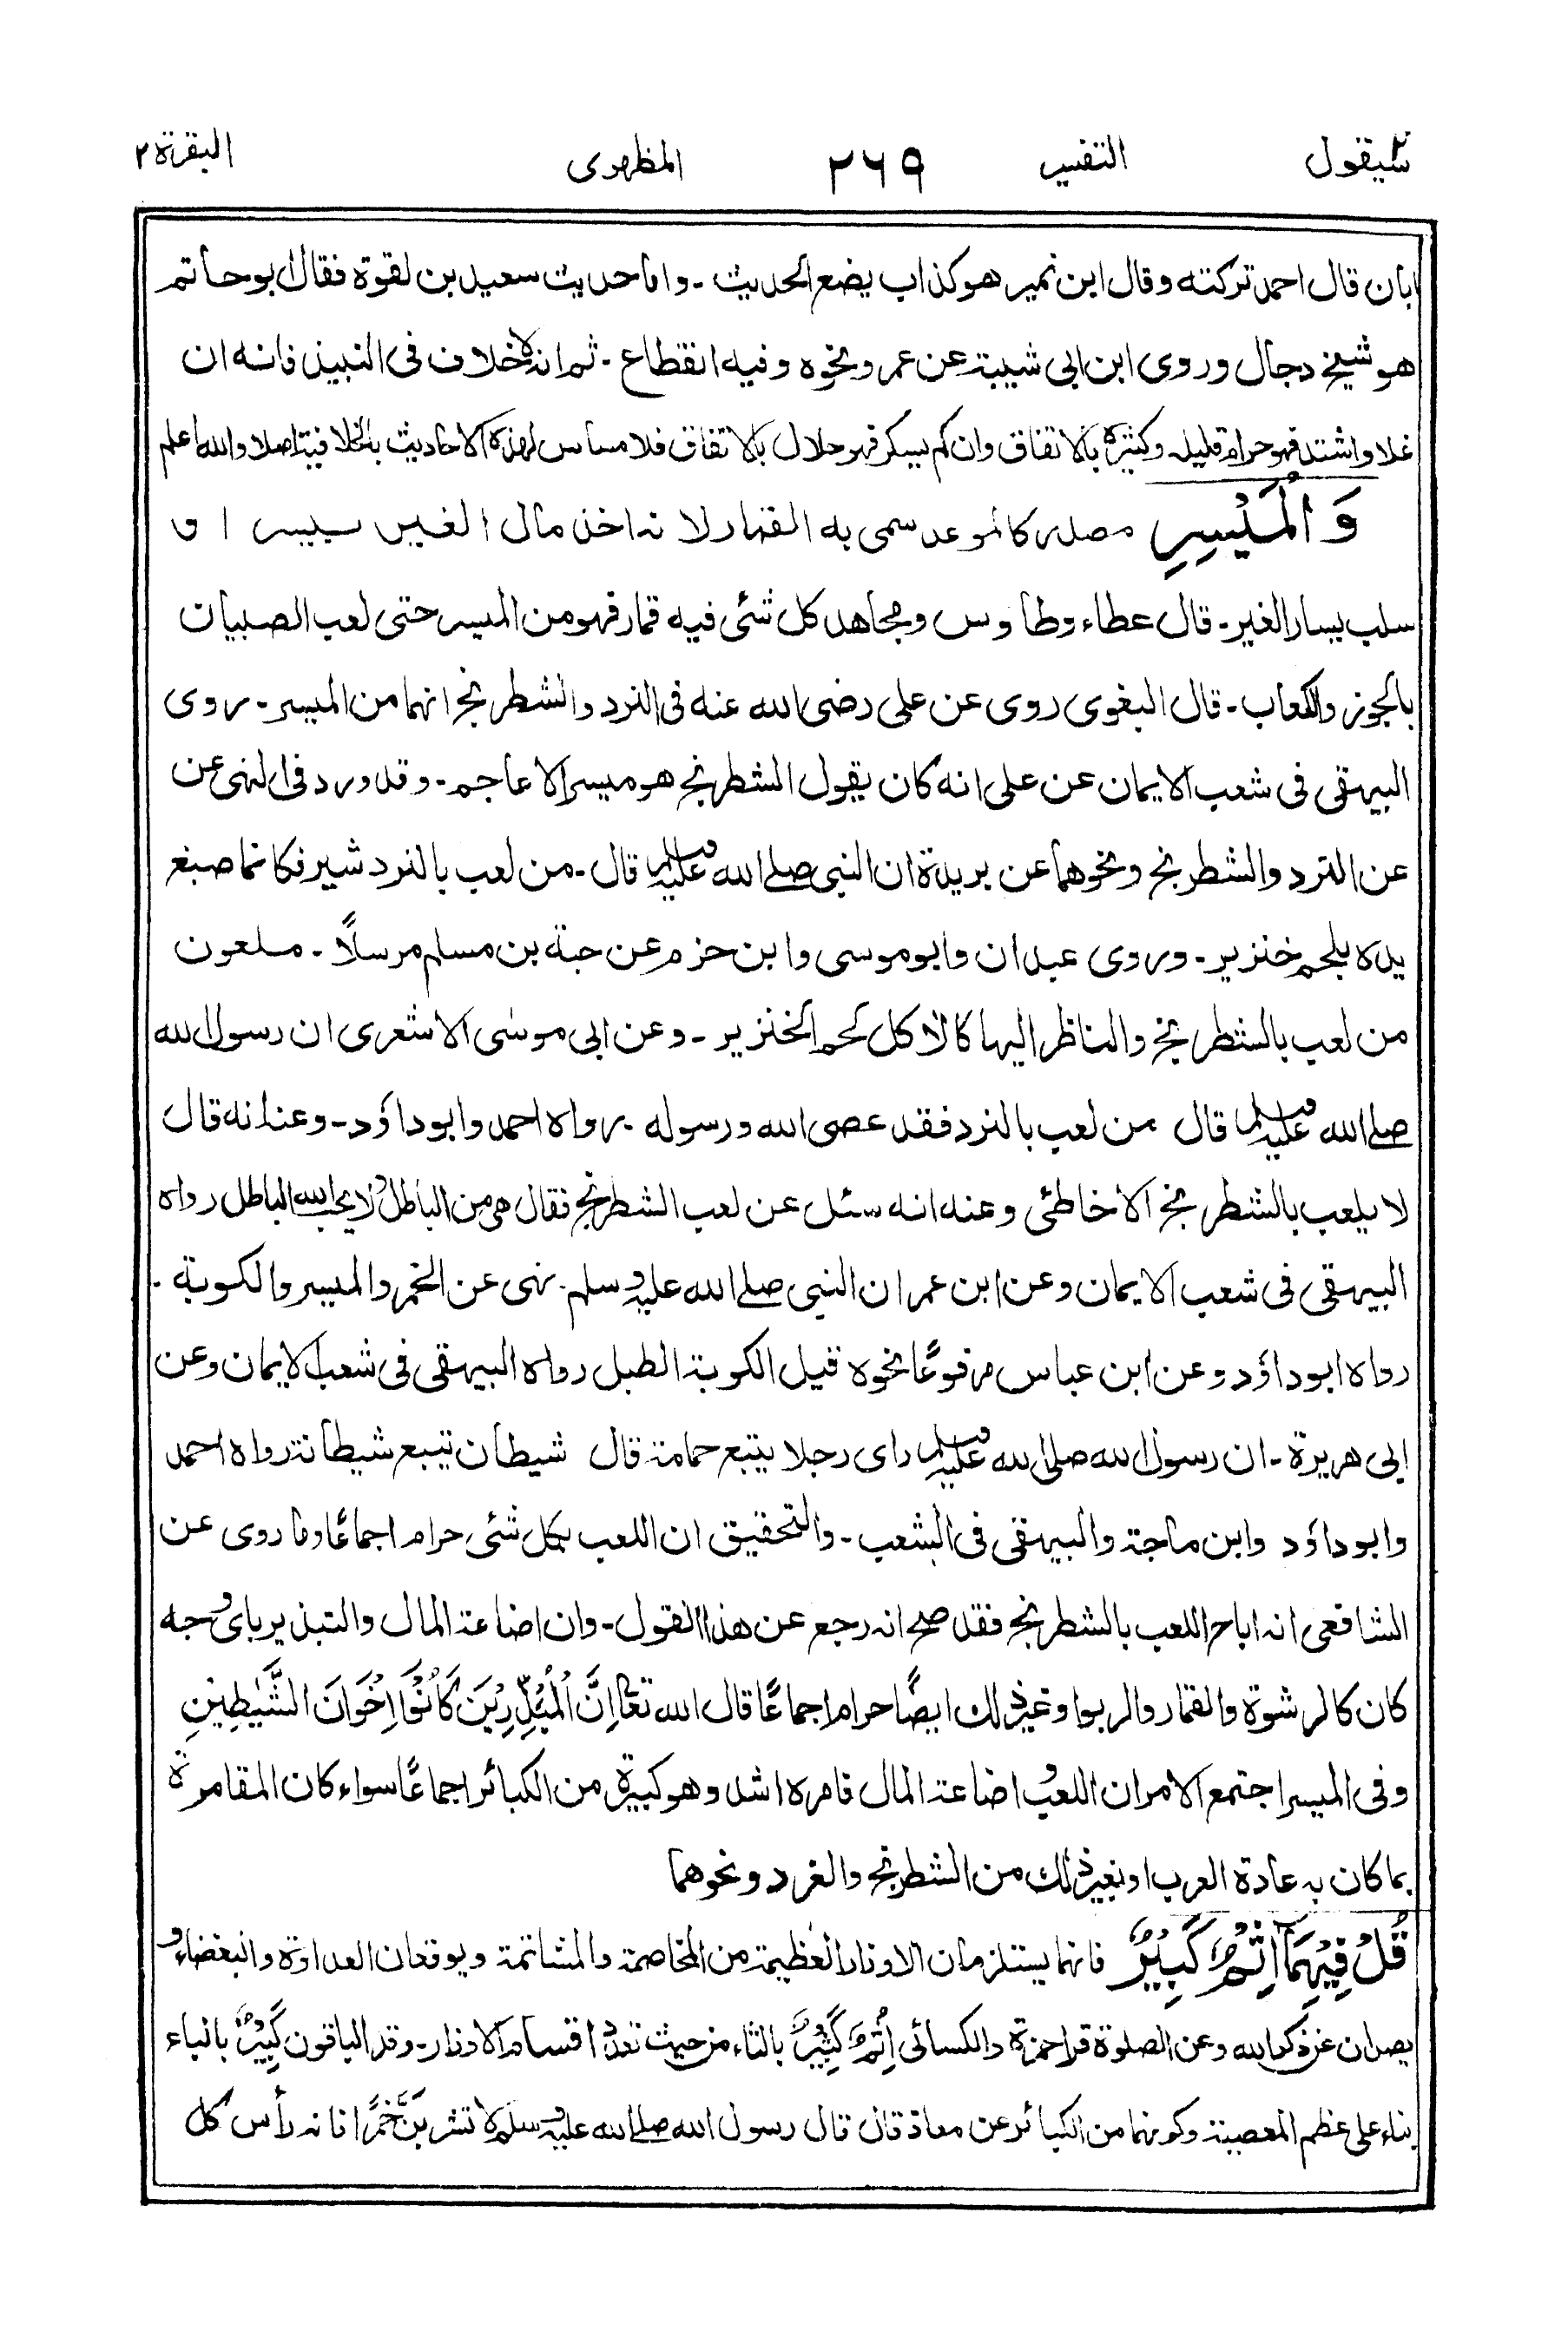 سيقول ٢ التفسير ٢٦٩ المظهرى البقرة ٢
ابان قال احمد تركته وقال ابن نمير هو كذاب يضع الحديث ـ واما حديث سعيد بن لقوة فقال ابو حاتم
هو شيخ دجال وروى ابن ابى شيبة عن عمر ونحوه وفيه انقطاع ـ ثم انه لا خلاف فى النبيذ فانه ان
غلا واشتد فهو حرام قليله وكثيره بالاتفاق وان لم يسكر فهو حلال بالاتفاق فلا مساس لهذه الاحاديث بالخلافية اصلا والله اعلم
وَالْمَيْسِرِ مصدر كالموعد سمى به القمار لانه اخذ مال الغير بيسر او
سلب يسار الغير ـ قال عطاء وطاوس ومجاهد كل شئ فيه قمار فهو من الميسر حتى لعب الصبيان
بالجوز والكعاب ـ قال البغوى روى عن على رضى الله عنه فى النرد والشطرنج انهما من الميسر ـ روى
البيهقى فى شعب الايمان عن على انه كان يقول الشطرنج هو ميسر الاعاجم ـ وقد ورد فى النهى عن
عن النرد والشطرنج ونحوهما عن بريدة ان النبى صلے الله عليه وسلم قال ـ من لعب بالنرد شير فكانما صبغ
يده بلحم خنزير ـ وروى عبدان وابو موسى وابن حزم عن حبة بن مسلم مرسلًا ـ ملعون
من لعب بالشطرنج والناظر اليها كالاكل لحم الخنزير ـ وعن ابى موسى الاشعرى ان رسول الله
صلے الله عليه وسلم قال من لعب بالنرد فقد عصى الله ورسوله ـ رواه احمد وابو داؤد ـ وعنه انه قال
لا يلعب بالشطرنج الا خاطئ وعنه انه سئل عن لعب الشطرنج فقال هى من الباطل ولا يحب الله الباطل رواه
البيهقى فى شعب الايمان وعن ابن عمر ان النبى صلے الله عليه وسلم نهى عن الخمر والميسر والكوبة ـ
رواه ابو داؤد وعن ابن عباس مرفوعًا نحوه قيل الكوبة الطبل رواه البيهقى فى شعب الايمان وعن
ابى هريرة ـ ان رسول الله صلى الله عليه وسلم راى رجلا يتبع حمامة قال شيطان يتبع شيطانة رواه احمد
وابو داؤد وابن ماجة والبيهقى فى الشعب ـ والتحقيق ان اللعب بكل شئ حرام اجماعًا وما روى عن
الشافعى انه اباح اللعب بالشطرنج فقد صح انه رجع عن هذا القول ـ وان اضاعة المال والتبذير باى وجه
كان كالرشوة والقمار والربوا وغير ذلك ايضًا حرام اجماعًا قال الله تعالى اِنَّ الْمُبَذِّرِيْنَ كَانُوْٓا اِخْوَانَ الشَّيٰطِيْنِ
وفى الميسر اجتمع الامران اللعب و اضاعة المال فامره اشد وهو كبيرة من الكبائر اجماعًا سواء كان المقامرة
بما كان به عادة العرب او بغير ذلك من الشطرنج والغرد ونحوهما
قُلْ فِيْهِمَآ اِثْمٌ كَبِيْرٌ فانهما يستلزمان الاوزار العظيمة من المخاصمة والمشاتمة ويوقعان العداوة والبغضاء و
يصدان عن ذكر الله وعن الصلوة قرا حمزة والكسائى اِثْمٌ كَثِيْرٌ بالثاء من حيث تعدد اقسام الاوزار ـ وقرا الباقون كَبِيْرٌ بالباء
بناء على عظم المعصية وكونهما من الكبائر عن معاذ قال قال رسول الله صلے الله عليه وسلم لا تشربَنَّ خمرًا فانه رأس كل